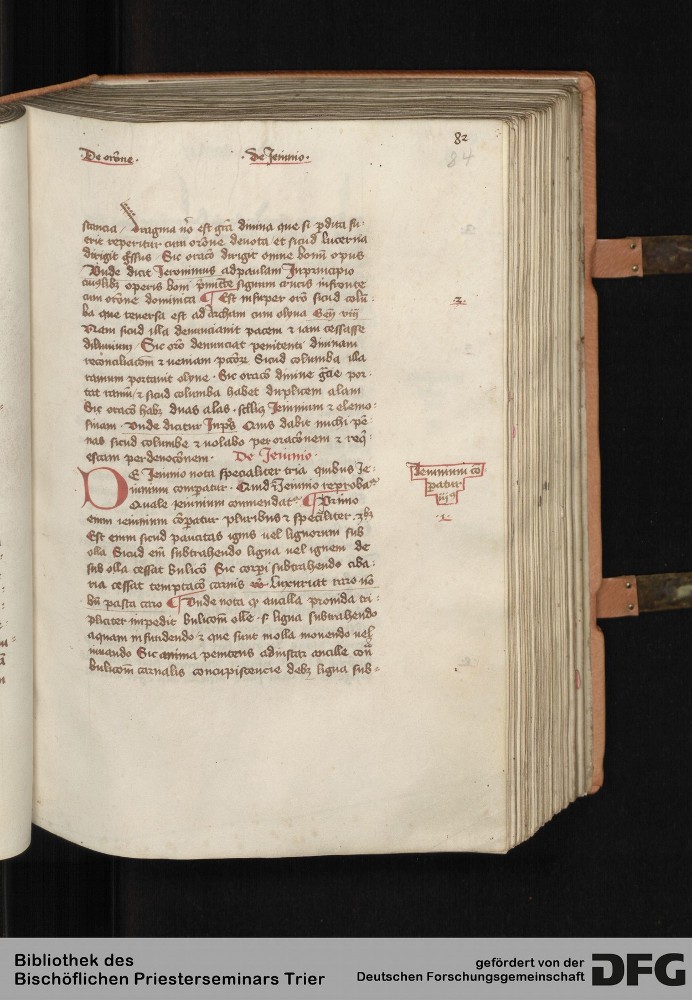 82
84
De orōne · De Jeiunio ·
stancia / Dragma nō est grā diuina que si pdita fu-
erit reperitur cum orōne deuota et sicud lucerna
dirigit gssus · Sic oracō dirigit omne bonū opus
Unde dicit Jeronimus ad paulam In principio
cuiuslibz operis boni pmitte signum crucis in fronte
cum orōne dominica ¶ Est insuper orō sicud colū-
ba que reuersa est ad archam cum oliua Geñ viij
Nam sicud illa denunciauit pacem et iam cessasse
diluuium / Sic orō denunciat penitenti diuinam
recōnciliacōm et veniam pctōrꝫ Sicud columba illa
ramum portauit olyue · Sic oracō diuine grāe por-
tat ramū / et sicud columba habet duplicem alam
Sic oracō habꝫ duas alas · scilicꝫ Jeiunium et elemo-
sinam · Unde dicitur In psͦ Quis dabit michi pē-
nas sicud columbe et uolabo per oracōnem et reqͥ-
escam per deuocōnem · De Jeiunio ·
DE Jeiunio nota specialiter tria quibus Je-
iunium comparatur · Quid Jeiunio reprobatʳ
Quale ieiunium commendatʳ ¶ Primo
enim ieiunium cōparatur pluribus et specialiter ·
Est enim sicud paucitas ignis vel lignorum sub
olla Sicud enī subtrahendo ligna vel ignem de
sub olla cessat bulicō Sic corpī subtrahendo ciba-
ria cessat temptacō carnis Luxuriat raro nō
bn̄ pasta caro ¶ Unde nota qꝫ ancilla prouida tri-
pliciter impedit bulicom olle · s· ligna subtrahendo
aquam infundendo et que sunt in olla mouendo vel
Sic anima penitens ad instar ancille
bulicom carnalis concupiscencie debꝫ ligna sub-
·3·
Jeiunium cō
patur
iijᵃ
·1·
Bibliothek des
Bischöflichen Priesterseminars Trier
gefördert von der
Deutschen Forschungsgemeinschaft
DFG